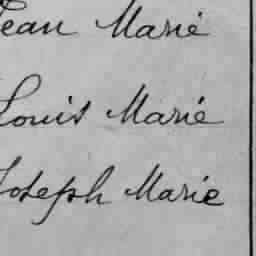 Jean Marie
Louis Marie
Joseph Marie